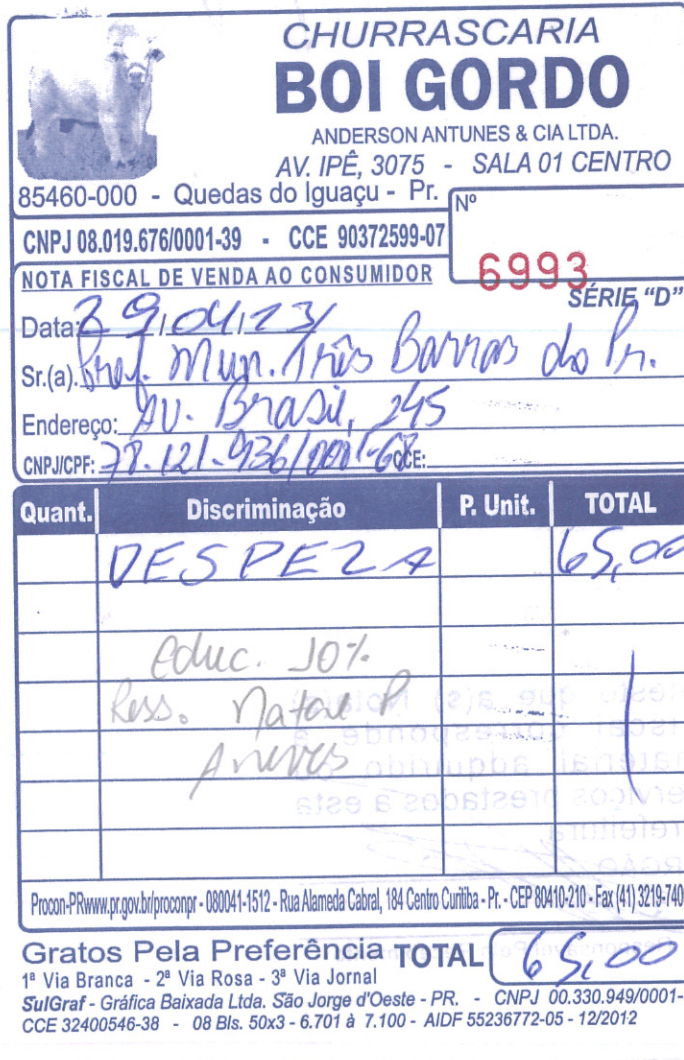 CHURRASCARIA
BOI GORDO
ANDERSON ANTUNES & CIA LTDA.
AV. IPÊ, 3075 - SALA 01 CENTRO
85460-000 - Quedas do Iguaçu - Pr.
CNPJ 08.019.676/0001-39 - CCE 90372599-07
Nº
6993
SÉRIE "D"
NOTA FISCAL DE VENDA AO CONSUMIDOR
Data: 29/04/23
Sr.(a). Pref. Mun. Três Barras do Pr.
Endereço: AV. Brasil, 245
CNPJ/CPF: 78.121.936/0001-68 CCE:
Quant. Discriminação P. Unit. TOTAL
DESPEZA 65,00
Educ. 10%
Ress.
Procon-PRwww.pr.gov.br/proconpr - 080041-1512 - Rua Alameda Cabral, 184 Centro Curitiba - Pr. - CEP 80410-210 - Fax (41) 3219-740
Gratos Pela Preferência TOTAL 65,00
1ª Via Branca - 2ª Via Rosa - 3ª Via Jornal
SulGraf - Gráfica Baixada Ltda. São Jorge d'Oeste - PR. - CNPJ 00.330.949/0001-
CCE 32400546-38 - 08 Bls. 50x3 - 6.701 à 7.100 - AIDF 55236772-05 - 12/2012